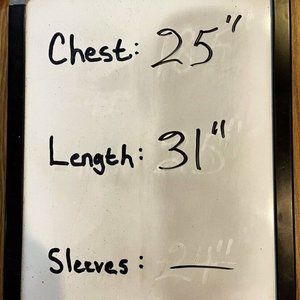 Chest: 25"
Length: 31"
Sleeves: —